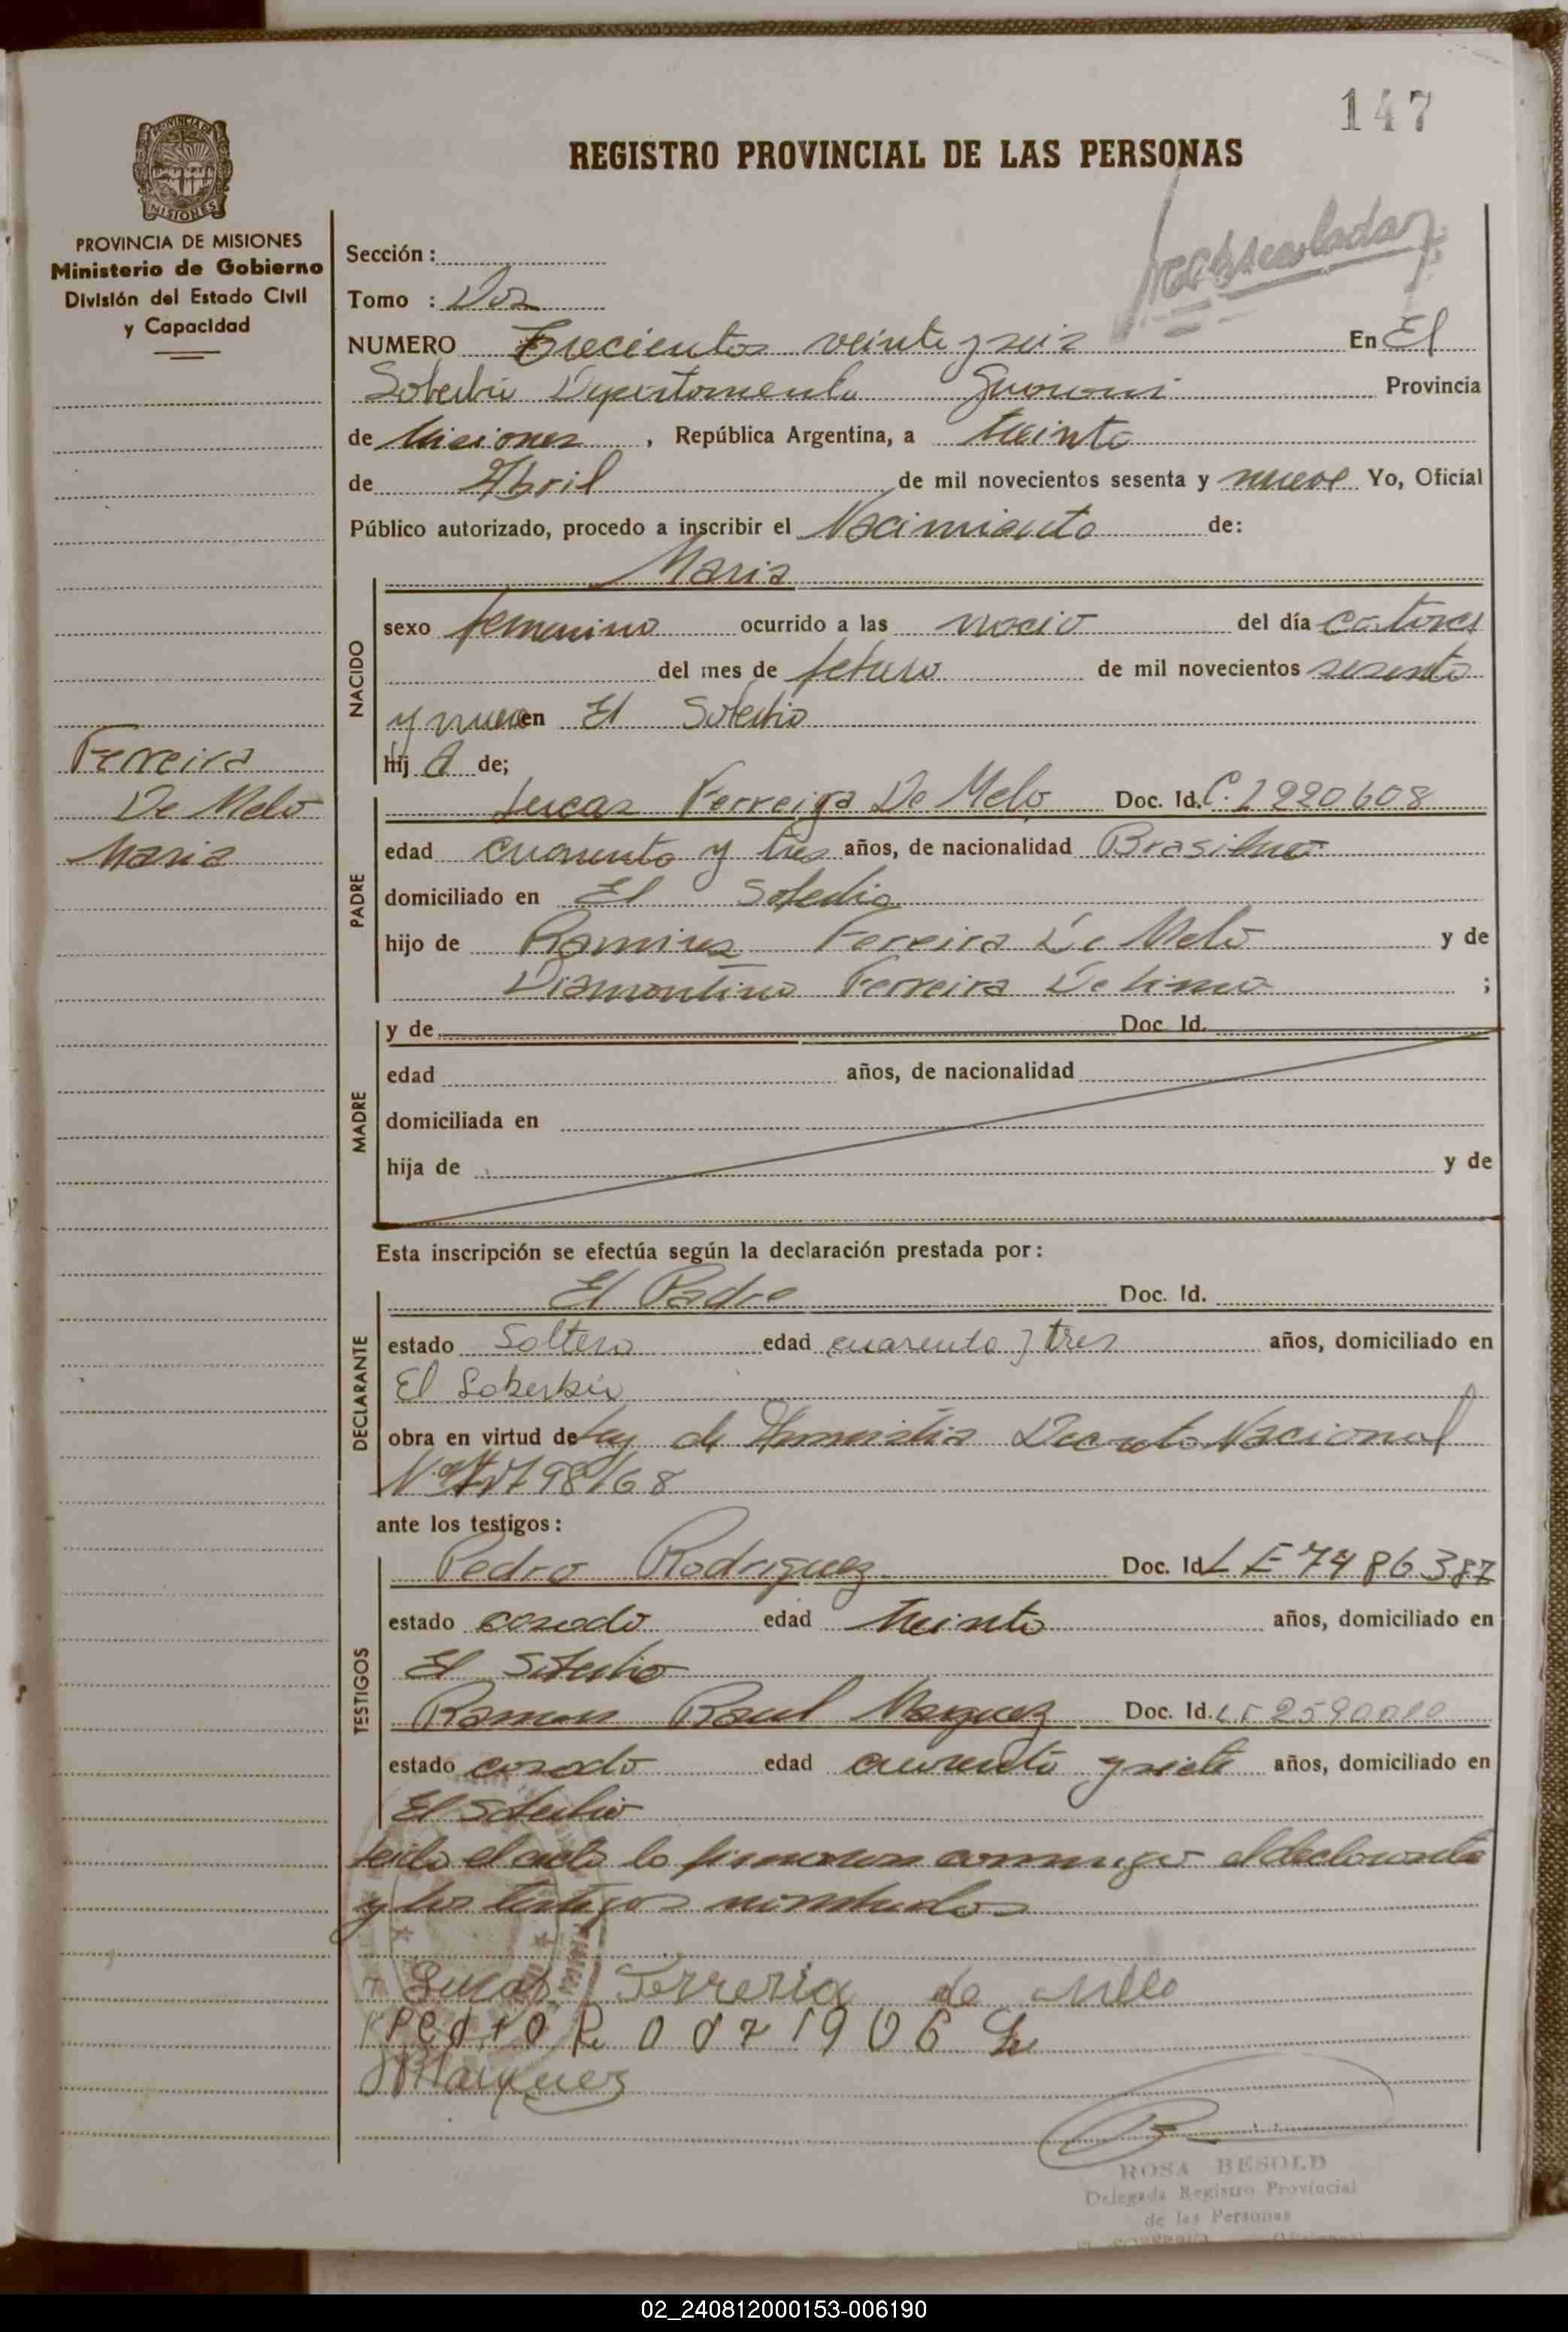 147
REGISTRO PROVINCIAL DE LAS PERSONAS
PROVINCIA DE MISIONES
Ministerio de Gobierno
División del Estado Civil
y Capacidad
Sección :
Tomo : Dos
NUMERO Trecientos veinte y seis En El
Soberbio Departamento Guarani Provincia
de Misiones , República Argentina, a treinta
de Abril de mil novecientos sesenta y nueve Yo, Oficial
Público autorizado, procedo a inscribir el Nacimiento de:
Maria
NACIDO
sexo femenino ocurrido a las del día catorce
del mes de febrero de mil novecientos sesenta
y nueve en El Soberbio
hij a de;
Ferreira
De Melo
Maria
PADRE
Lucas Ferreira De Melo Doc. Id. C. 1220608
edad cuarenta y tres años, de nacionalidad Brasilera
domiciliado en El Soberbio
hijo de Ramires Ferreira De Melo y de
Diamontina Ferreira De Lima ;
MADRE
y de Doc. Id.
edad años, de nacionalidad
domiciliada en
hija de y de
Esta inscripción se efectúa según la declaración prestada por :
DECLARANTE
El Padre Doc. Id.
estado Soltero edad cuarenta y tres años, domiciliado en
El Soberbio
obra en virtud de Ley de Amnistia Decreto Nacional
98/68
ante los testigos :
TESTIGOS
Pedro Rodriguez Doc. Id. L E 7486387
estado casado edad treinta años, domiciliado en
El Soberbio
Ramon Raul Marquez Doc. Id. LE
estado casado edad cuarenta y siete años, domiciliado en
El Soberbio
Leida el acta la firmaron conmigo el declarante
y los testigos nombrados
Lucas Ferreria de Mello
Pedro
Marquez
ROSA BESOLD
Delegada Registro Provincial
de las Personas
EL SOBERBIO (Misiones)
02_240812000153-006190